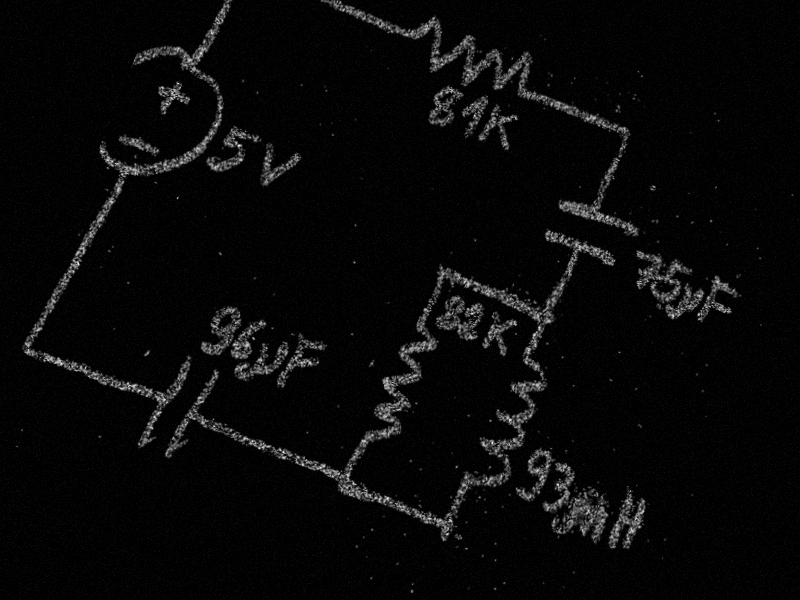 81K
5V
75µF
82K
96µF
93mH